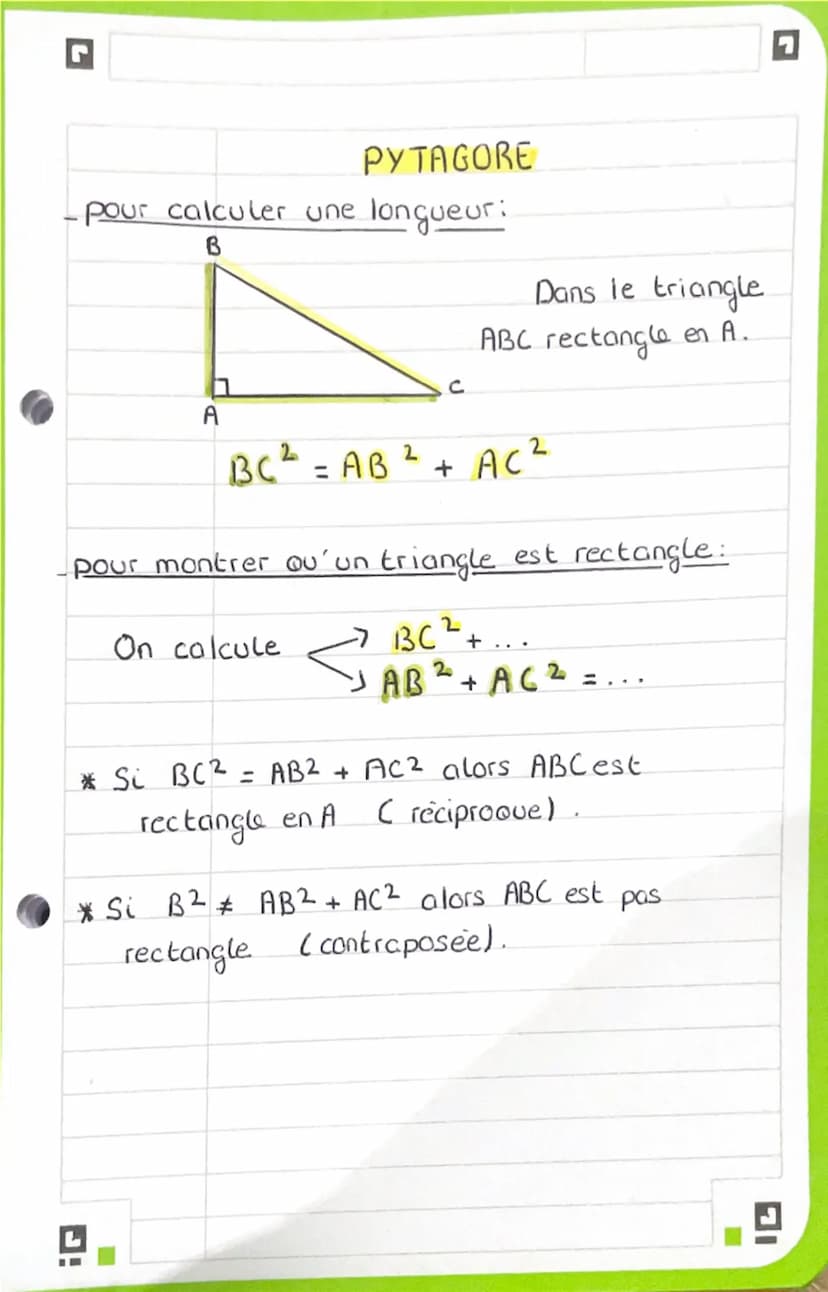 PYTAGORE
- pour calculer une longueur:
B
Dans le triangle
ABC rectangle en A.
C
A
BC² = AB² + AC²
- pour montrer qu'un triangle est rectangle:
On calcule → BC² + ...
→ AB² + AC² = ...
* Si BC² = AB² + AC² alors ABC est
rectangle en A (réciproque).
* Si B² ≠ AB² + AC² alors ABC est pas
rectangle (contraposée).